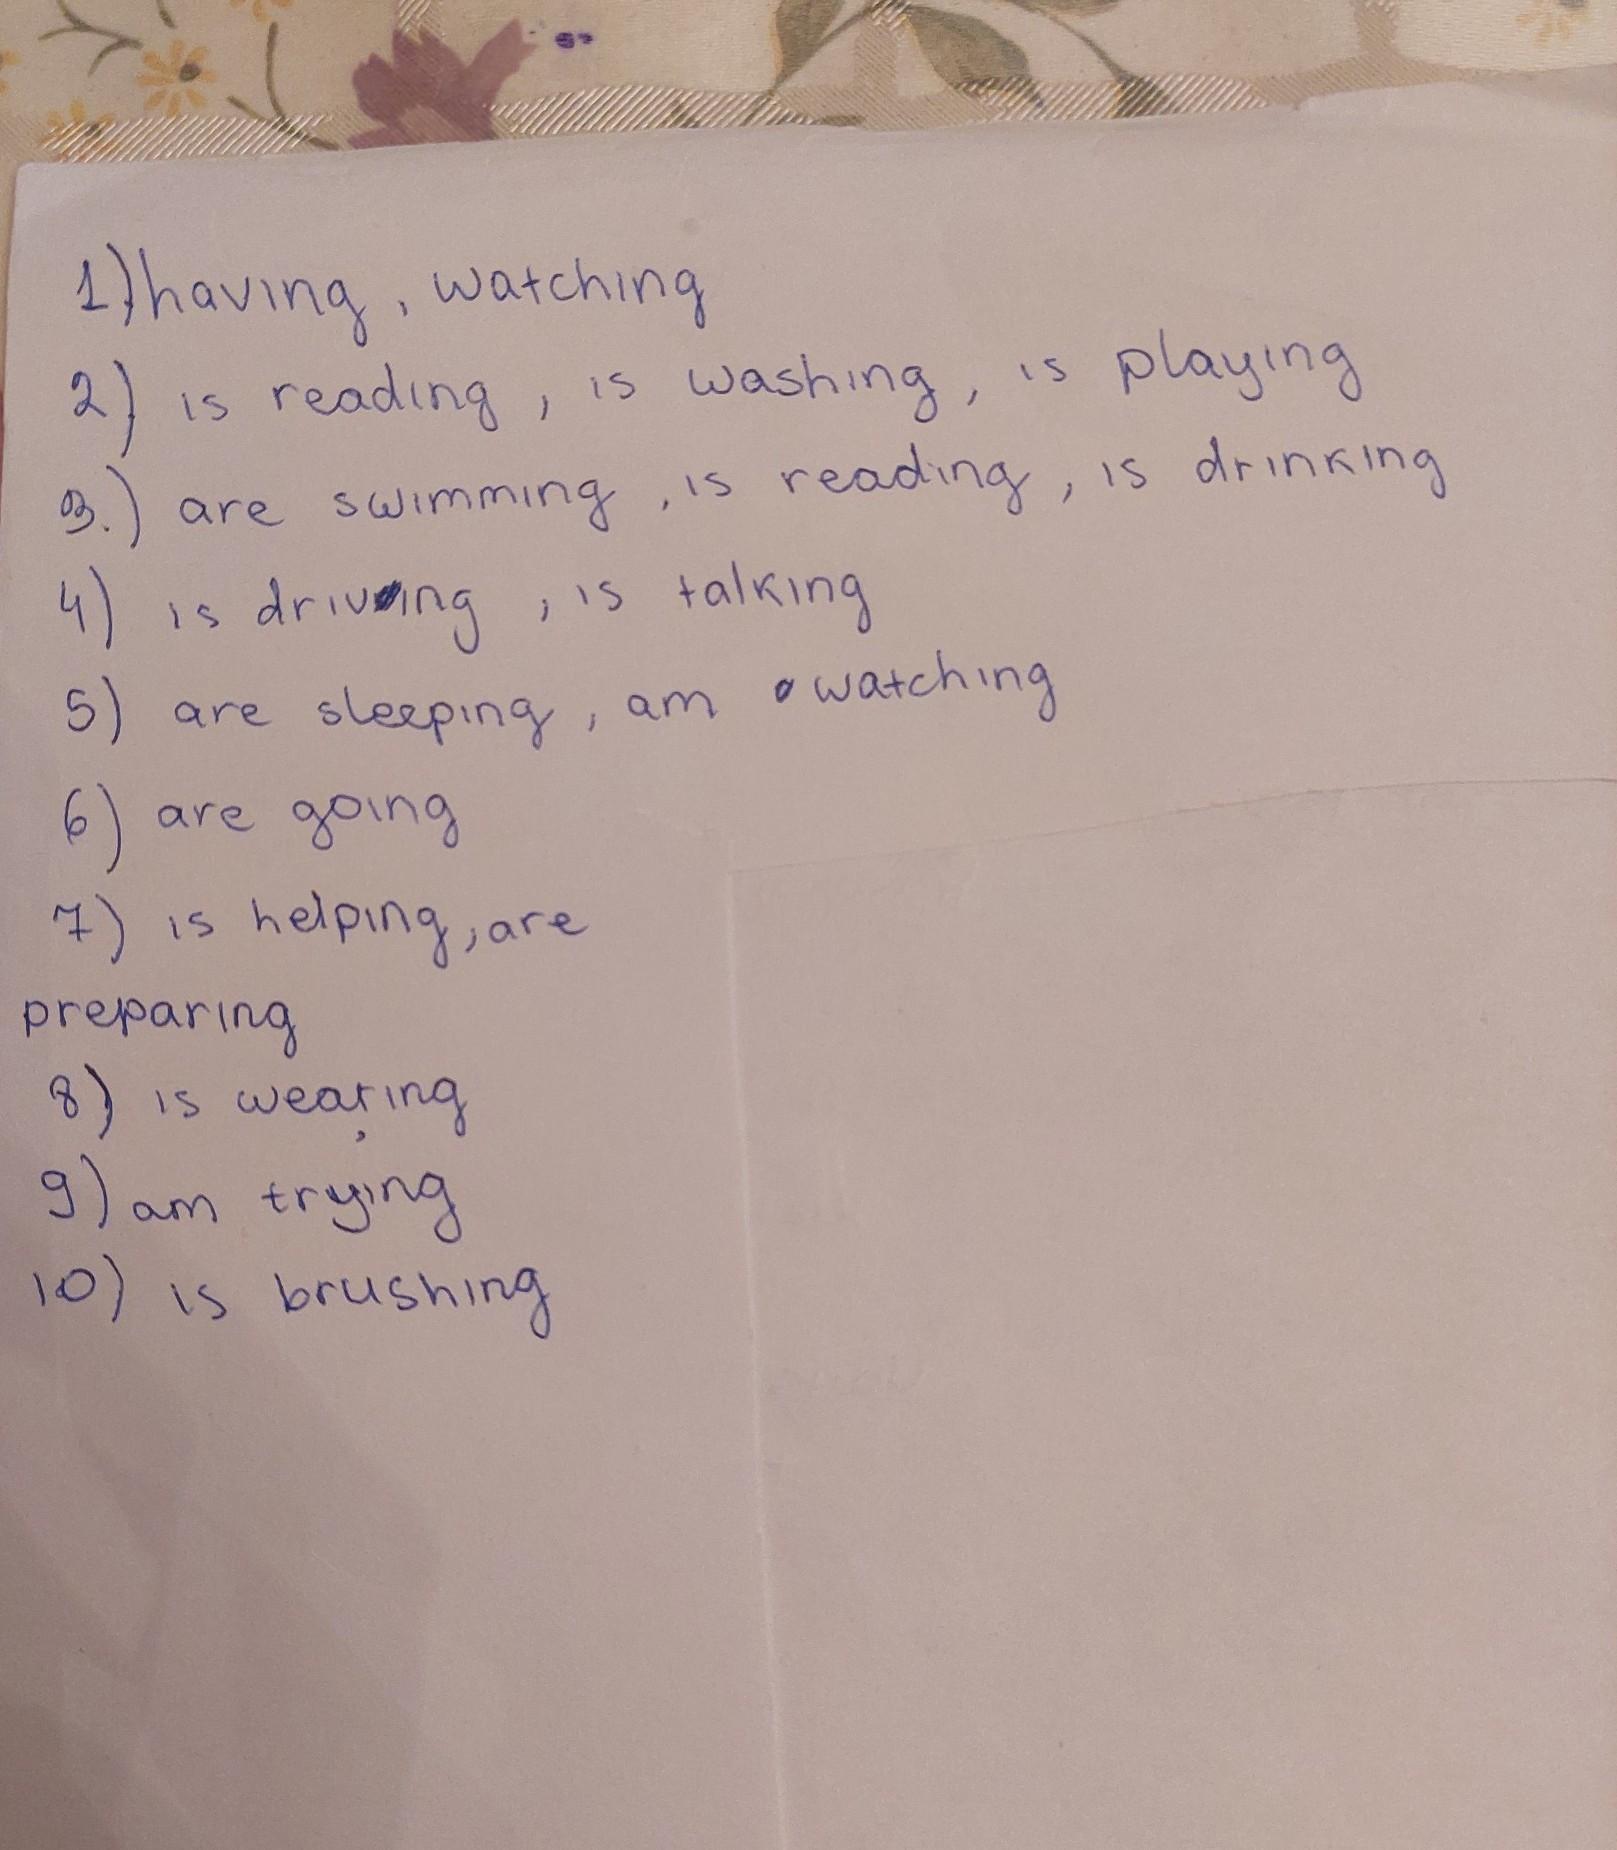 1) having, watching
2) is reading, is washing, is playing
3.) are swimming, is reading, is drinking
4) is driving, is talking
5) are sleeping, am watching
6) are going
7) is helping, are
preparing
8) is wearing
9) am trying
10) is brushing